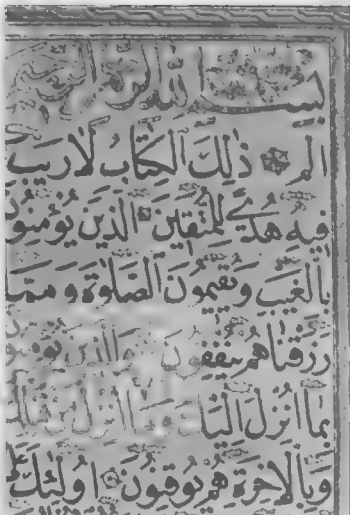 بسم الله الرحمن
الم ذٰلِكَ الْكِتَابُ لَا رَيْبَ
فِيهِ هُدًى لِلْمُتَّقِينَ الَّذِينَ يُؤْمِنُونَ
بِالْغَيْبِ وَيُقِيمُونَ الصَّلوٰةَ وَمِمَّا
رَزَقْنَاهُمْ يُنْفِقُونَ وَالَّذِينَ يُؤْمِنُونَ
بِمَا اُنْزِلَ اِلَيْكَ وَمَا اُنْزِلَ مِنْ قَبْلِكَ
وَبِالْاٰخِرَةِ هُمْ يُوقِنُونَ اُولٰئِكَ عَلٰى